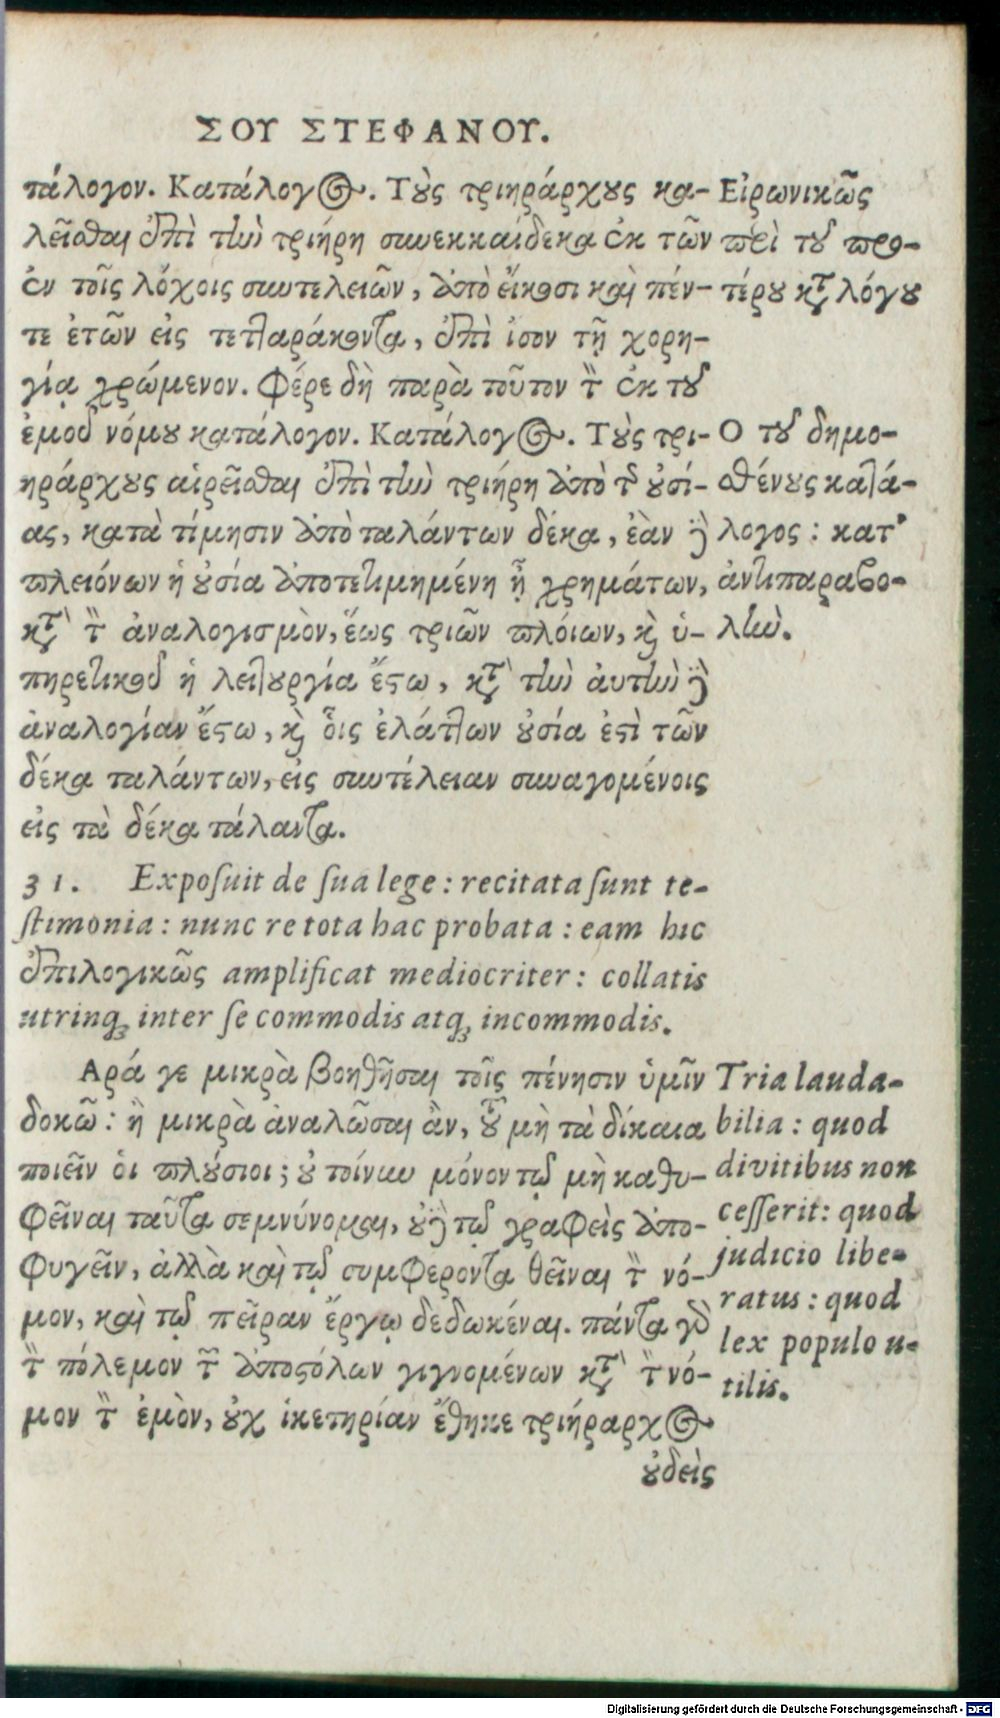 ΣΟΥ ΣΤΕΦΑΝΟΥ.
τάλογον. Κατάλογος. Τοὺς τριηράρχους κα-
λεῖσθαι ἐπὶ τὴν τριήρη συνεκκαίδεκα ἐκ τῶν
ἐν τοῖς λόχοις συντελειῶν, ἀπὸ εἴκοσι καὶ πέν-
τε ἐτῶν εἰς τετταράκοντα, ἐπὶ ἴσον τῇ χορη-
γίᾳ χρώμενον. Φέρε δὴ παρὰ τοῦτον τὸν ἐκ τοῦ
ἐμοῦ νόμου κατάλογον. Κατάλογος. Τοὺς τρι-
ηράρχους αἱρεῖσθαι ἐπὶ τὴν τριήρη ἀπὸ τῆς οὐσί-
ας, κατὰ τίμησιν ἀπὸ ταλάντων δέκα, ἐὰν δὲ
πλειόνων ἡ οὐσία ἀποτετιμημένη ᾖ χρημάτων,
κατὰ τὸν ἀναλογισμὸν, ἕως τριῶν πλόιων, καὶ ὑ-
πηρετικοῦ ἡ λειτουργία ἔστω, κατὰ τὴν ἀυτὴν δὲ
ἀναλογίαν ἔστω, καὶ οἷς ἐλάττων οὐσία ἐστὶ τῶν
δέκα ταλάντων, εἰς συντέλειαν συναγομένοις
εἰς τὰ δέκα τάλαντα.
31. Exposuit de sua lege: recitata sunt te-
stimonia: nunc re tota hac probata: eam hic
ἐπιλογικῶς amplificat mediocriter: collatis
utrinq; inter se commodis atq; incommodis.
Αρά γε μικρὰ βοηθῆσαι τοῖς πένησιν ὑμῖν
δοκῶ: ἢ μικρὰ ἀναλῶσαι ἂν, τοῦ μὴ τὰ δίκαια
ποιεῖν ὁι πλούσιοι; οὐ τοίνυν μόνον τῷ μὴ καθυ-
φεῖναι ταῦτα σεμνύνομαι, οὐδὲ τῷ γραφεὶς ἀπο-
φυγεῖν, ἀλλὰ καὶ τῷ συμφέροντα θεῖναι τὸν νό-
μον, καὶ τῷ πεῖραν ἔργῳ δεδωκέναι. πάντα γὰρ
τὸν πόλεμον τῶν ἀποστόλων γιγνομένων κατὰ τὸν νό-
μον τὸν ἐμὸν, οὐχ ἱκετηρίαν ἔθηκε τριήραρχος
οὐδεὶς
Εἰρωνικῶς
περὶ τοῦ προ-
τέρου καταλόγου
Ο τοῦ δημο-
σθένους κατά-
λογος: κατ'
ἀντιπαραβο-
λὴν.
Tria lauda-
bilia: quod
divitibus non
cesserit: quod
judicio libe-
ratus: quod
lex populo u-
tilis.
Digitalisierung gefördert durch die Deutsche Forschungsgemeinschaft - DFG